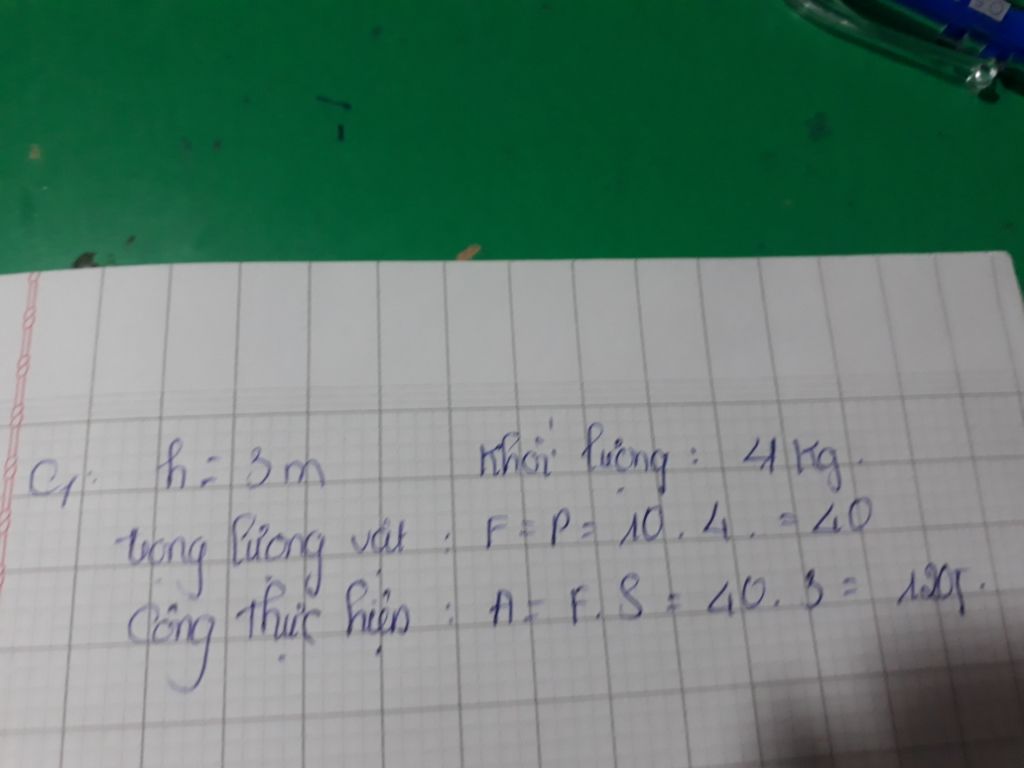 C1: h = 3m Khối lượng: 4 kg.
trọng lượng vật: F = P = 10.4. = 40
Công thực hiện: A = F.S = 40.3 = 120J.